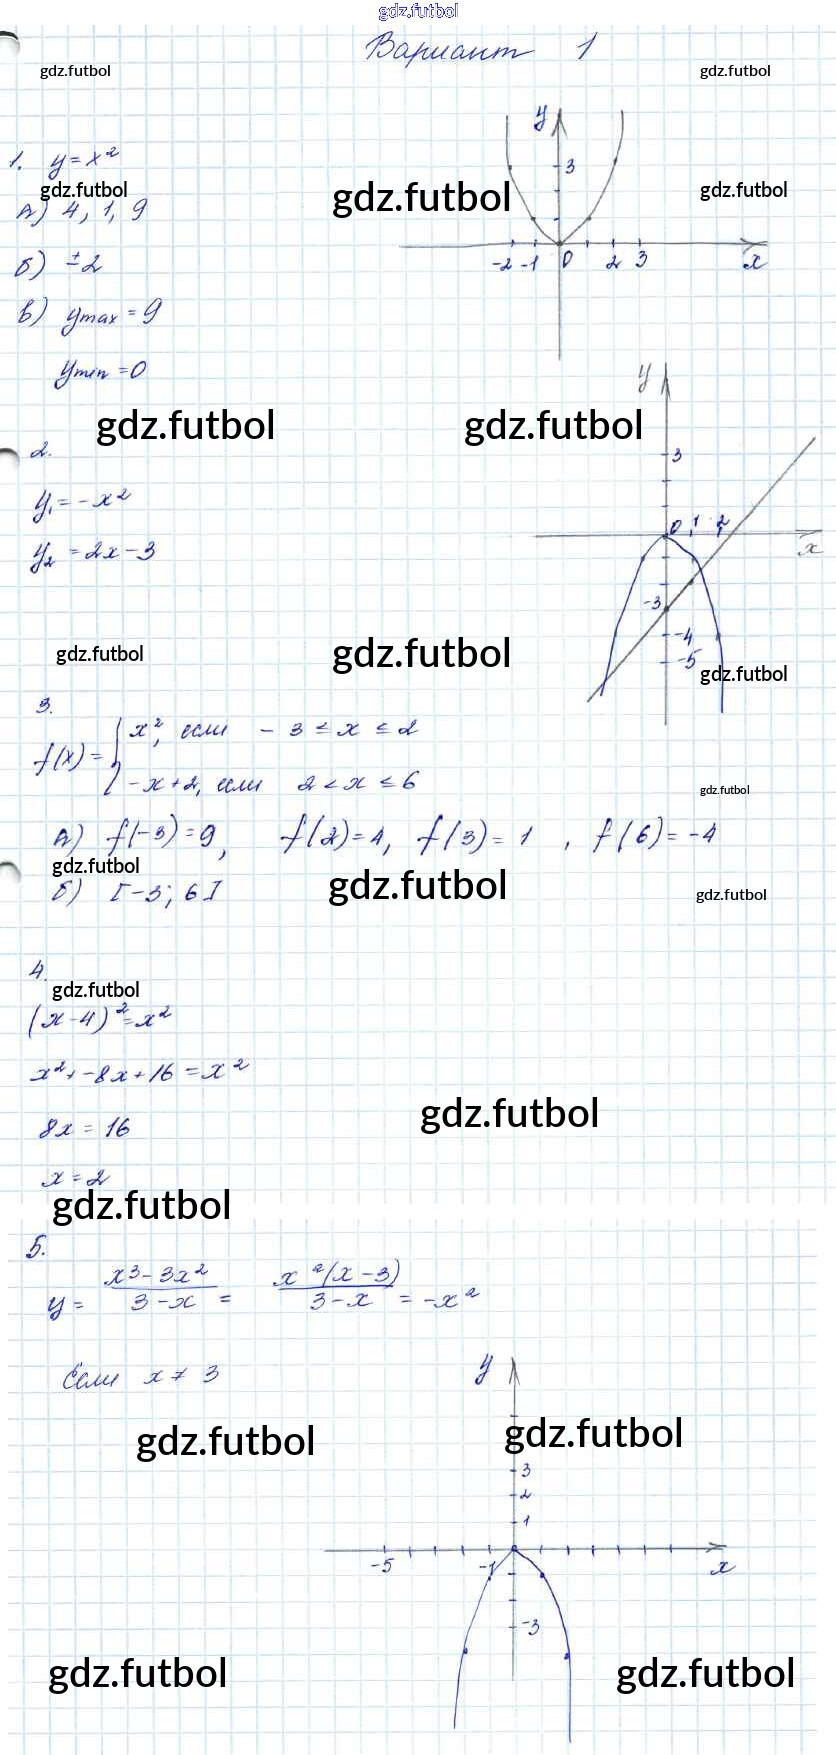 gdz.futbol
Вариант 1
gdz.futbol gdz.futbol
y
3
1. y = x²
gdz.futbol gdz.futbol gdz.futbol
А) 4, 1, 9
-2 -1 0 2 3 x
б) ±2
в) ymax = 9
ymin = 0
y
gdz.futbol gdz.futbol
2.
3
y₁ = -x²
0 1 2
x
y₂ = 2x - 3
-3
-4
-5
gdz.futbol gdz.futbol gdz.futbol
3.
f(x) = { x², если - 3 ≤ x ≤ 2
-x+2, если 2 < x ≤ 6
gdz.futbol
А) f(-3) = 9, f(2) = 4, f(3) = 1, f(6) = -4
gdz.futbol
б) [-3; 6]
gdz.futbol gdz.futbol
4.
gdz.futbol
(x-4)² = x²
x² + -8x + 16 = x²
gdz.futbol
8x = 16
x = 2
gdz.futbol
5.
y = x³ - 3x² / 3 - x = x²(x - 3) / 3 - x = -x²
Если x ≠ 3
y
gdz.futbol gdz.futbol
3
2
1
-5 -1 x
-3
gdz.futbol gdz.futbol